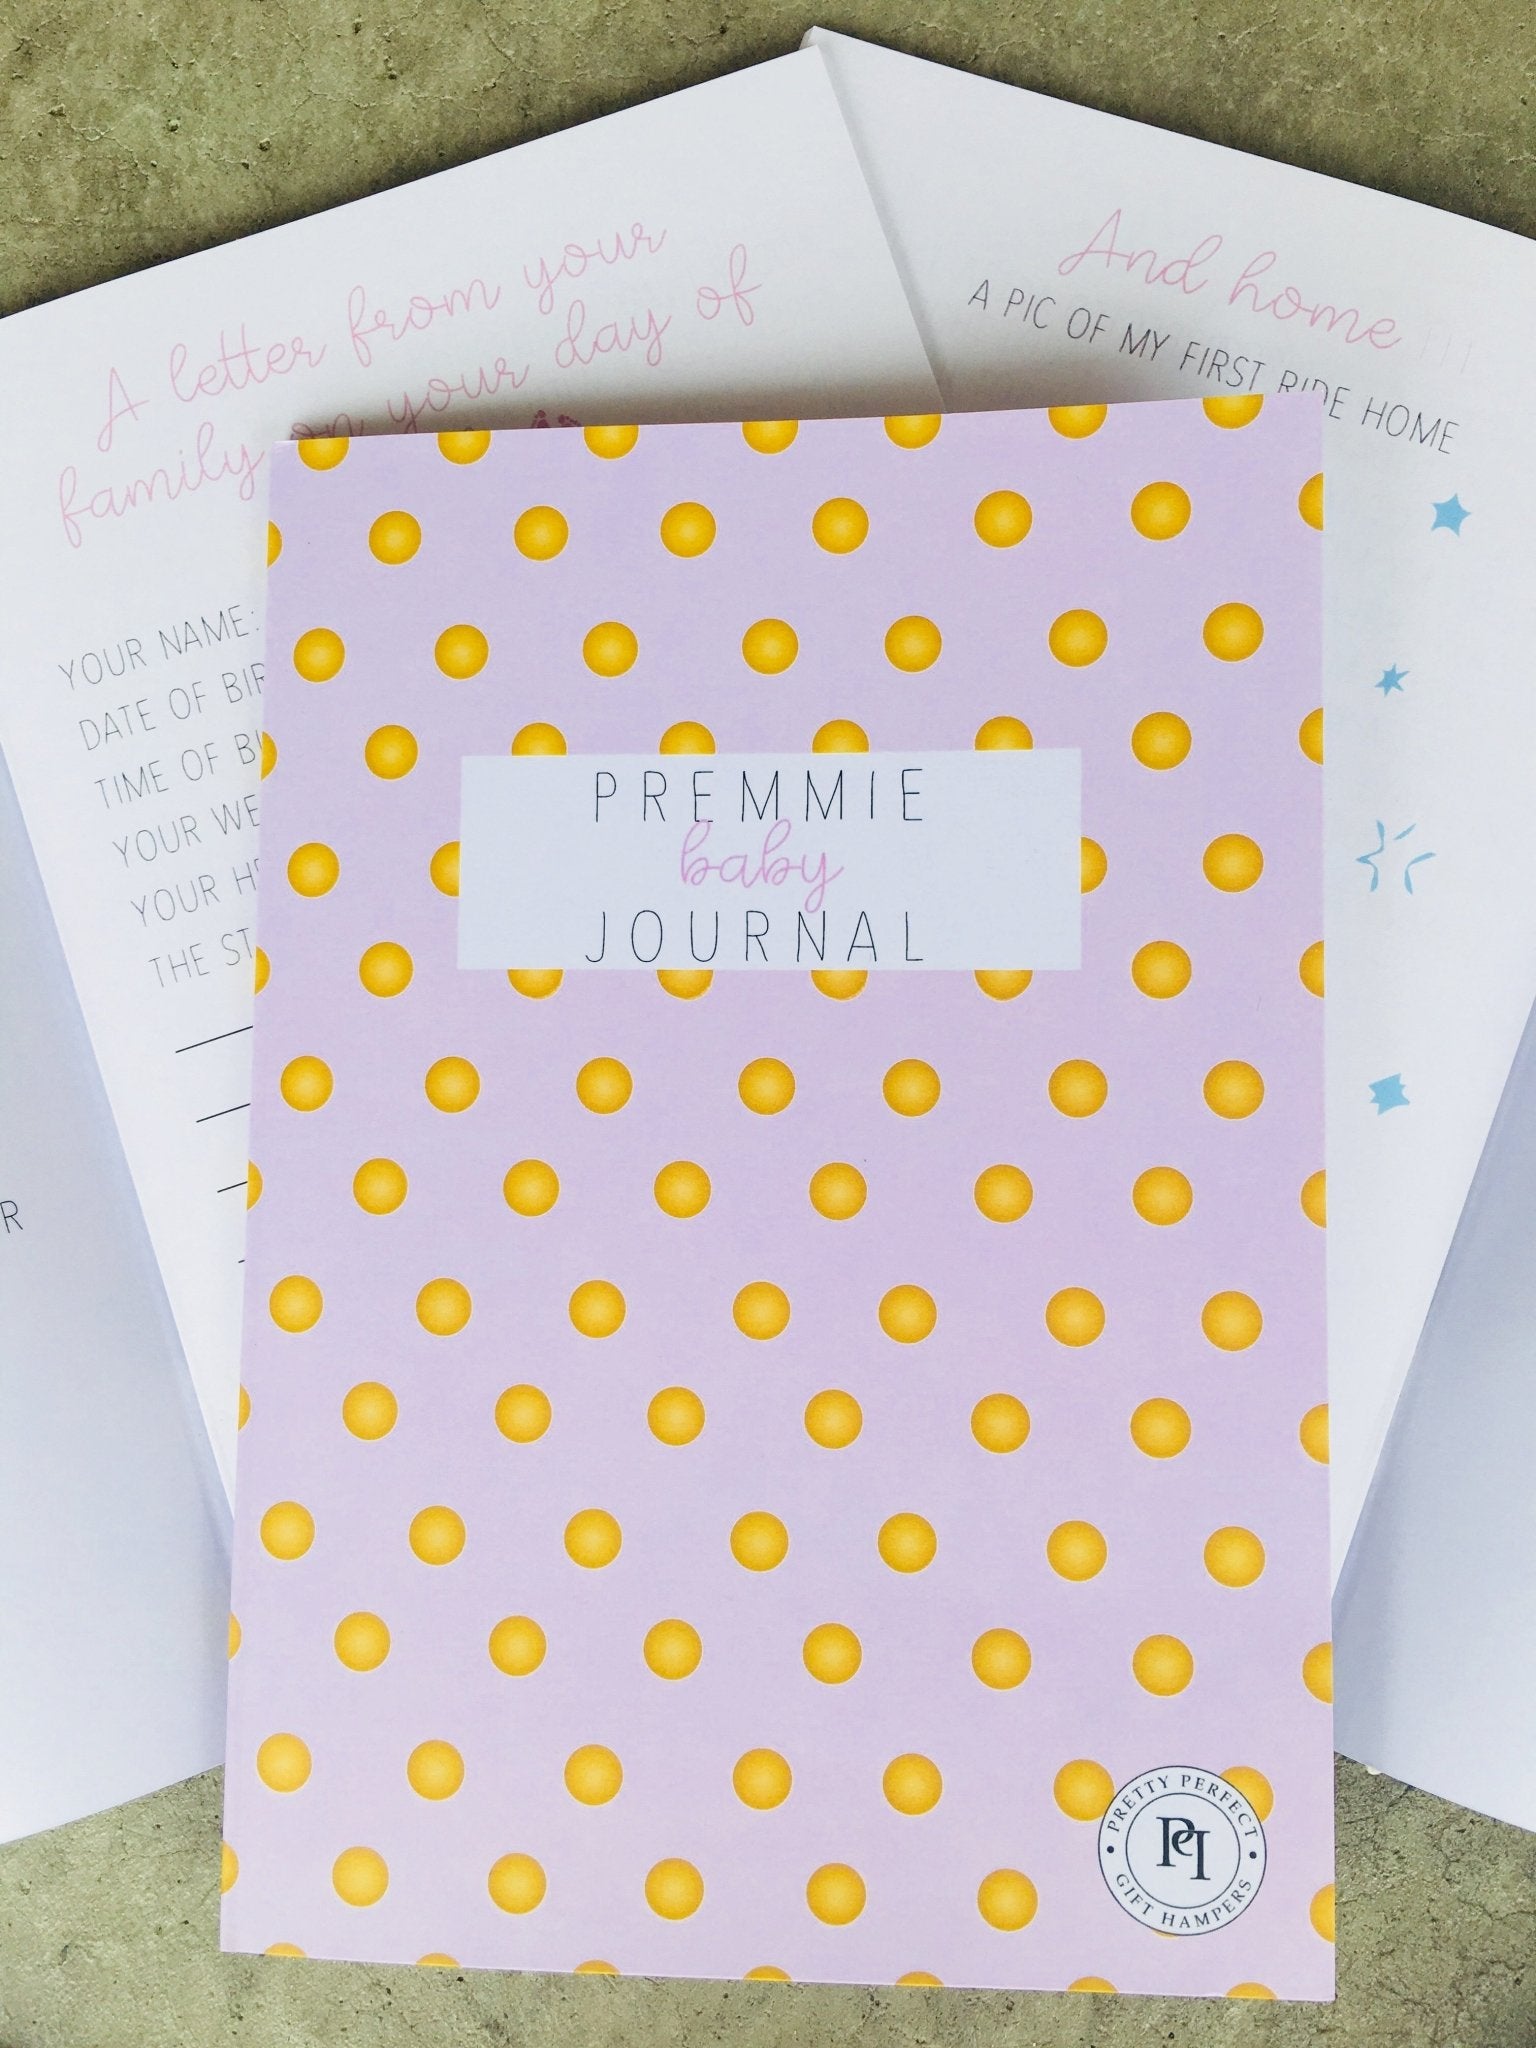 A letter from your
family on your day of
YOUR NAME:
DATE OF
TIME OF
YOUR
YOUR
THE
R
And home
A PIC OF MY FIRST RIDE HOME
PREMMIE
baby
JOURNAL
PRETTY PERFECT
PP
GIFT HAMPERS